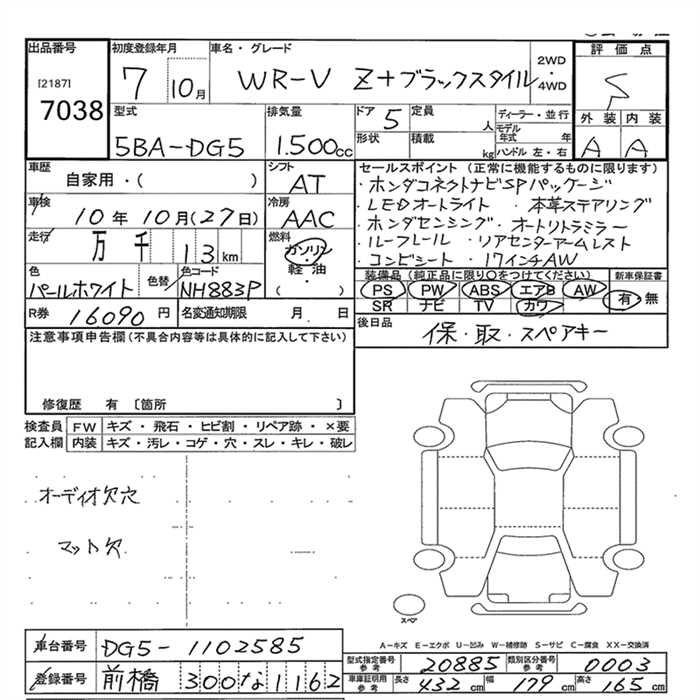 出品番号 初度登録年月 車名・グレード 2WD・4WD 評価点
[2187] 7038 7 10月 WR-V Z+ブラックスタイル S
型式 排気量 ドア 定員 ディーラー・並行 外装 内装
5BA-DG5 1.500cc 5 人 モデル年式 年 A A
形状 積載 kg ハンドル 左・右
車歴 シフト セールスポイント (正常に機能するものに限ります)
自家用・( ) AT ・ホンダコネクトナビSPパッケージ
車検 冷房 ・LEDオートライト ・本革ステアリング
10年10月(27日) AAC ・ホンダセンシング ・オートリトラミラー
走行 万 千 13km 燃料 ガソリン・軽油 ・ルーフレール ・リアセンターアームレスト
・コンビシート ・17インチAW
色 色替 色コード 装備品 (純正品に限り○をつけてください) 新車保証書
パールホワイト NH883P PS PW ABS エアB AW 有・無
SR ナビ TV カワ
R券 16090円 名変通知期限 月 日 後日品
保・取・スペアキー
注意事項申告欄 (不具合内容等は具体的に記入して下さい)
修復歴 有 〔箇所 〕
検査員 FW キズ・飛石・ヒビ割・リペア跡・×要
記入欄 内装 キズ・汚レ・コゲ・穴・スレ・キレ・破レ
オーディオ欠穴
マット欠
スペア
A-キズ E-エクボ U-凹み W-補修跡 S-サビ C-腐食 XX-交換済
車台番号 DG5-1102585
型式指定番号 参考 20885 類別区分番号 参考 0003
登録番号 前橋 300な1162
車庫証明用 参考 長さ 432cm 幅 179cm 高さ 165cm